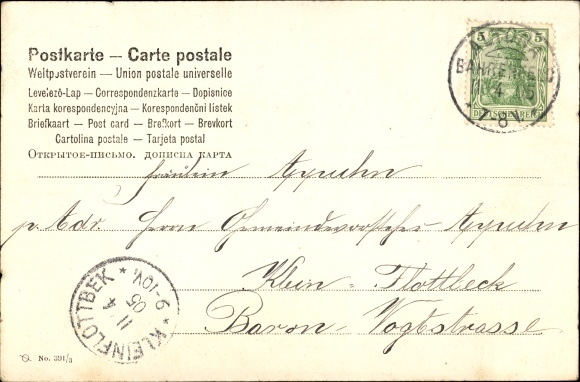 Postkarte — Carte postale
Weltpostverein — Union postale universelle
Levelező-Lap — Correspondenzkarte — Dopisnice
Karta korespondencyjna — Korespondenční listek
Briefkaart — Post card — Brefkort — Brevkort
Cartolina postale — Tarjeta postal
Открытое-письмо. дописна карта
5 5
DEUTSCHES REICH
ALTONA
BAHRENFELD
Fräulein Appuhn
p. Adr. Herrn Gemeindevorsteher Appuhn
Klein-Flottbeck
Baron-Vogtstrasse
* KLEINFLOTTBEK *
11
4
05
9-10V.
No. 391/3